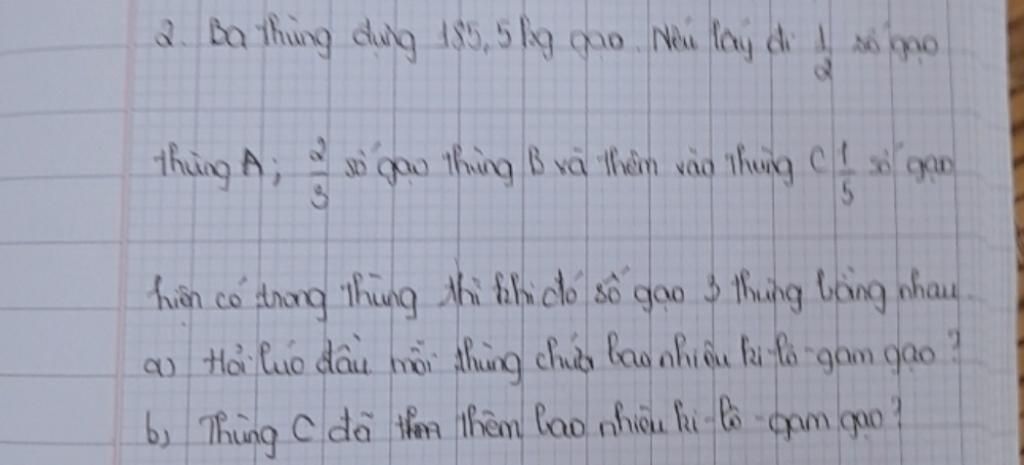 2. Ba thùng đựng 185,5 kg gạo. Nếu lấy đi 1/2 số gạo
thùng A; 2/3 số gạo thùng B và thêm vào thùng C 1/5 số gạo
hiện có trong thùng thì khi đó số gạo 3 thùng bằng nhau.
a) Hỏi lúc đầu mỗi thùng chứa bao nhiêu ki-lô-gam gạo?
b) Thùng C đã thêm bao nhiêu ki-lô-gam gạo?